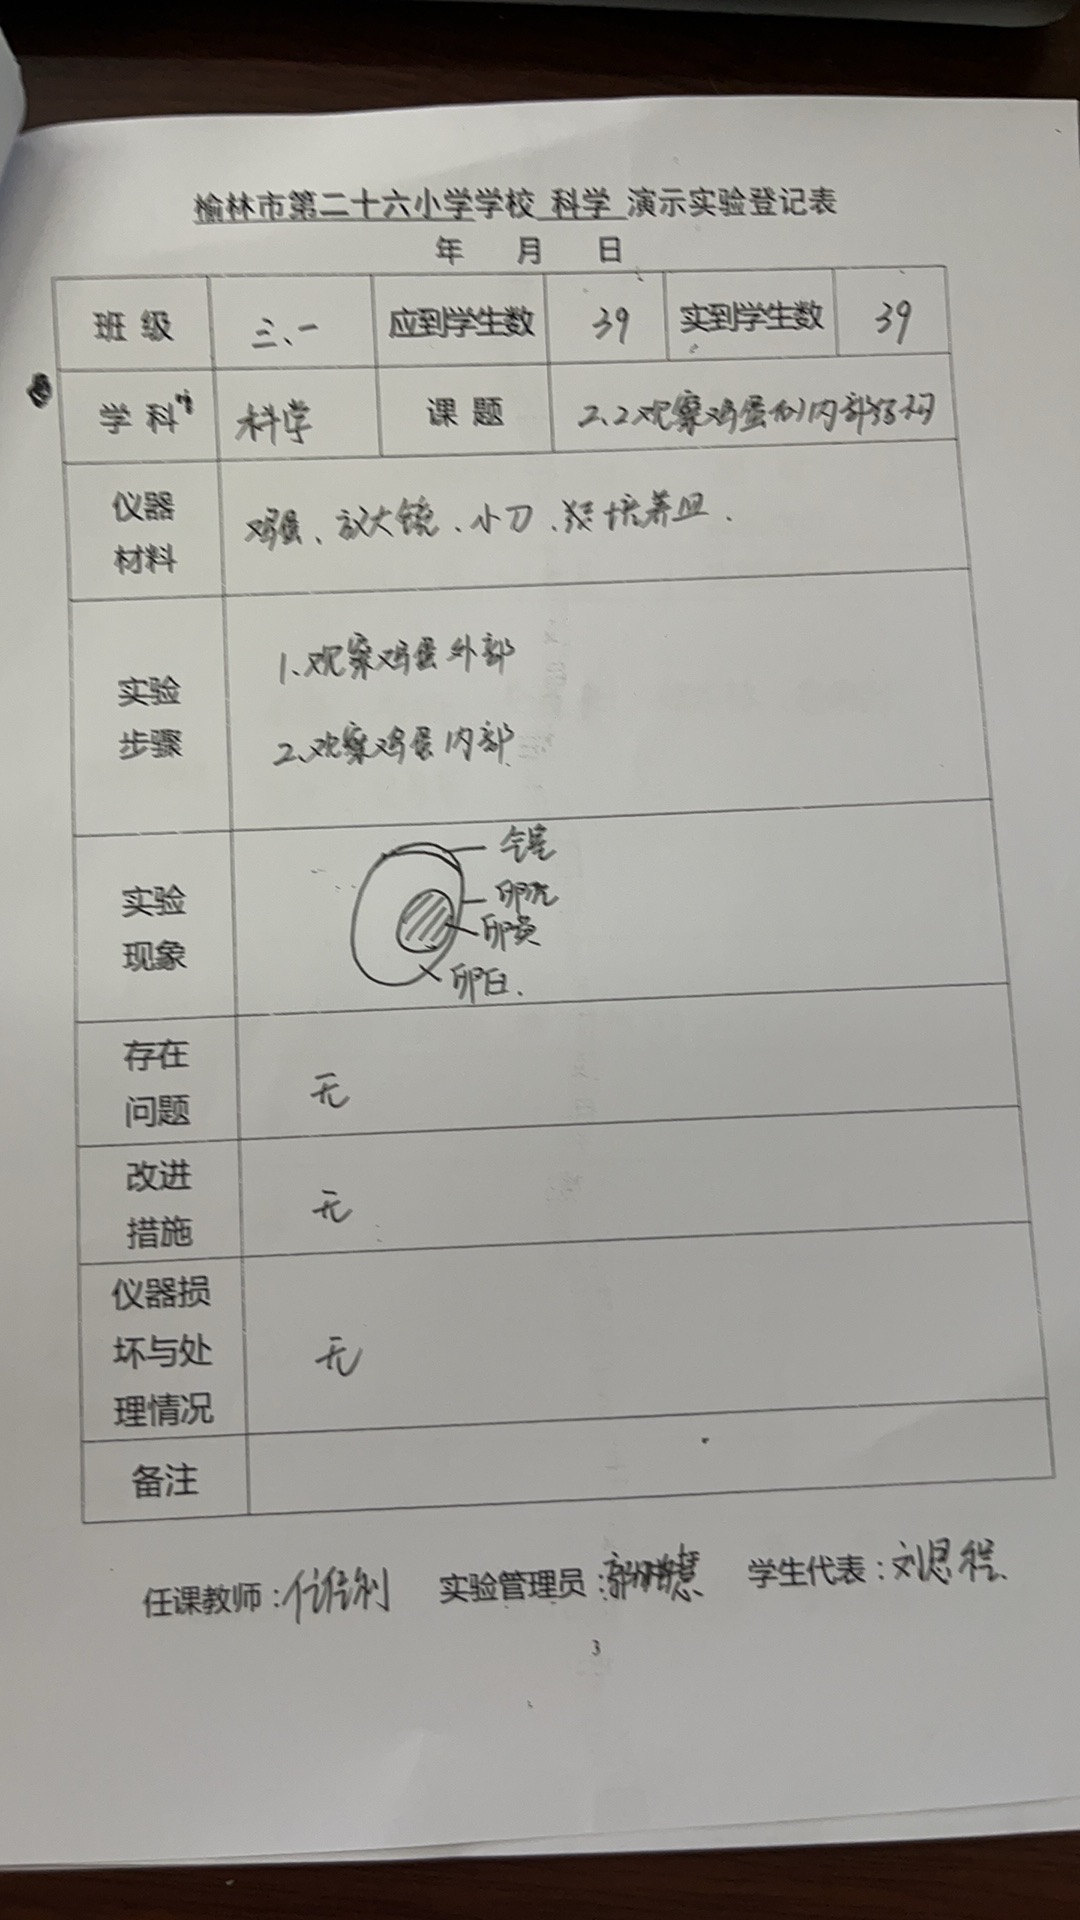 榆林市第二十六小学学校 科学 演示实验登记表
年 月 日
班级 三、一 应到学生数 39 实到学生数 39
学科 科学 课题 2.2观察鸡蛋的内部结构
仪器材料 鸡蛋、放大镜、小刀、培养皿.
实验步骤 1、观察鸡蛋外部
2、观察鸡蛋内部
实验现象 气室
卵壳
卵黄
卵白.
存在问题 无
改进措施 无
仪器损坏与处理情况 无
备注
任课教师: 实验管理员: 学生代表:刘思程
3